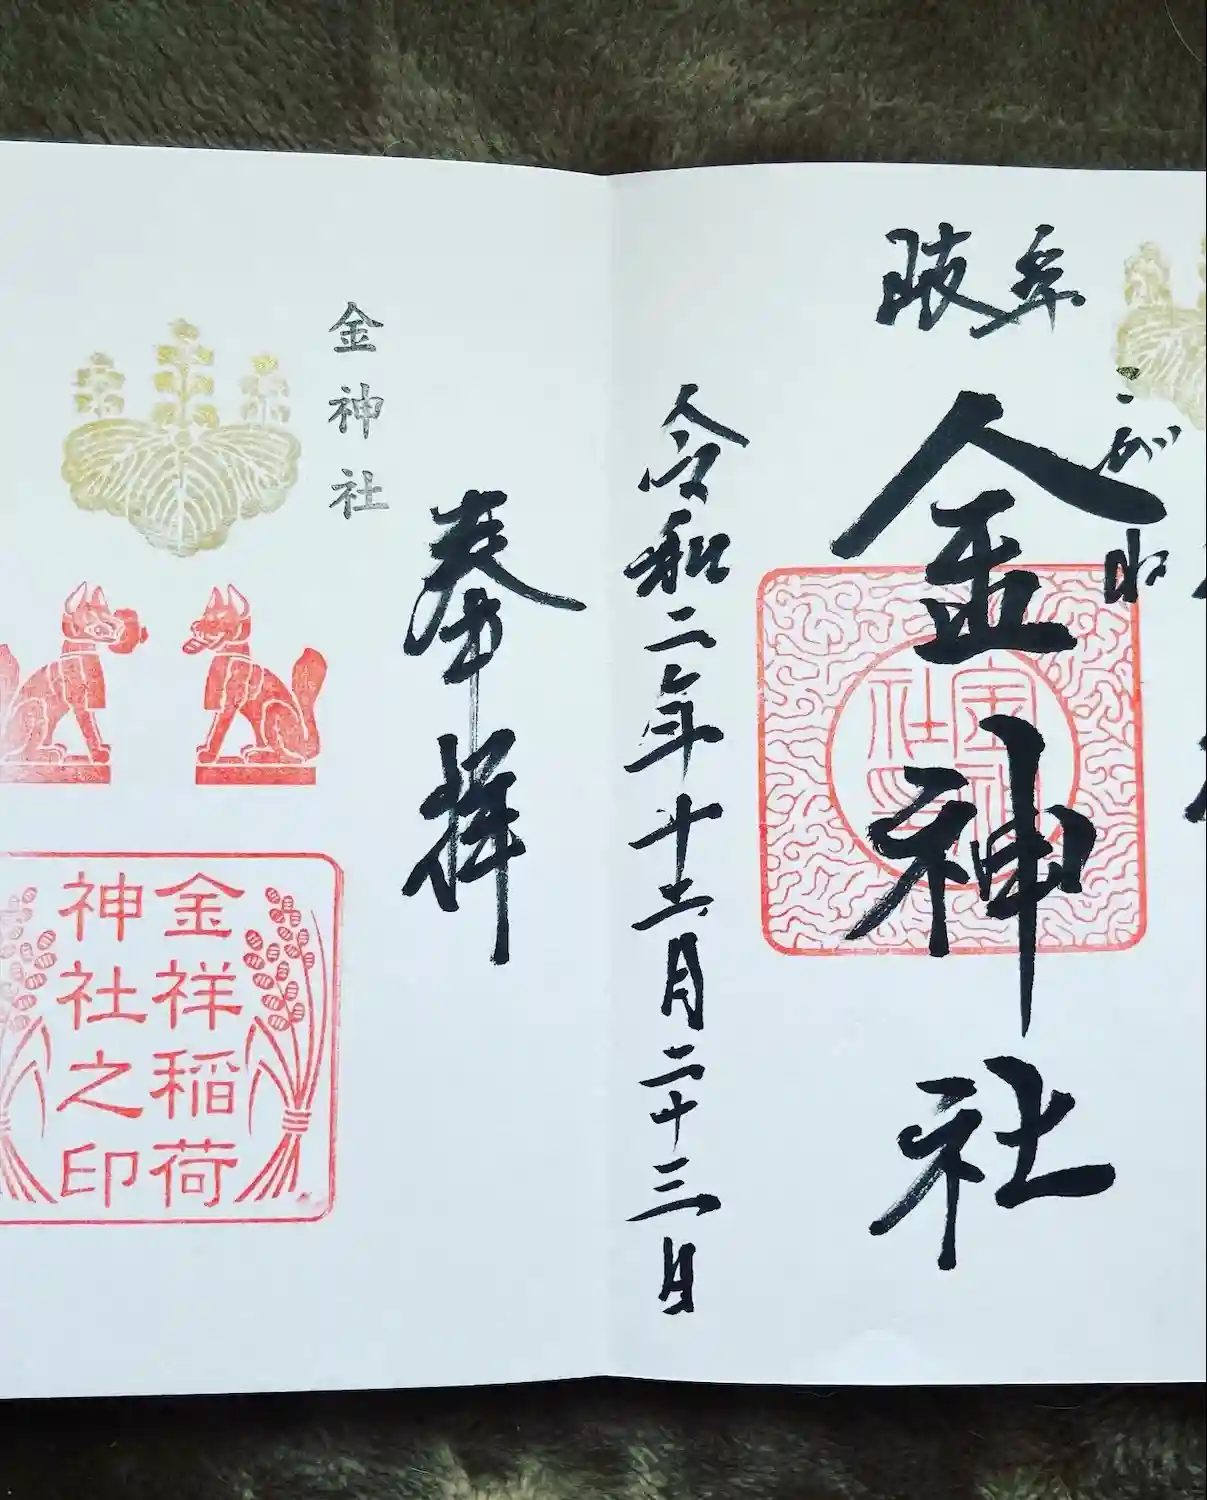 岐阜
こがね
金神社
金神
社
令和二年十二月二十三日
奉拝
金神社
金祥稲荷
神社之印